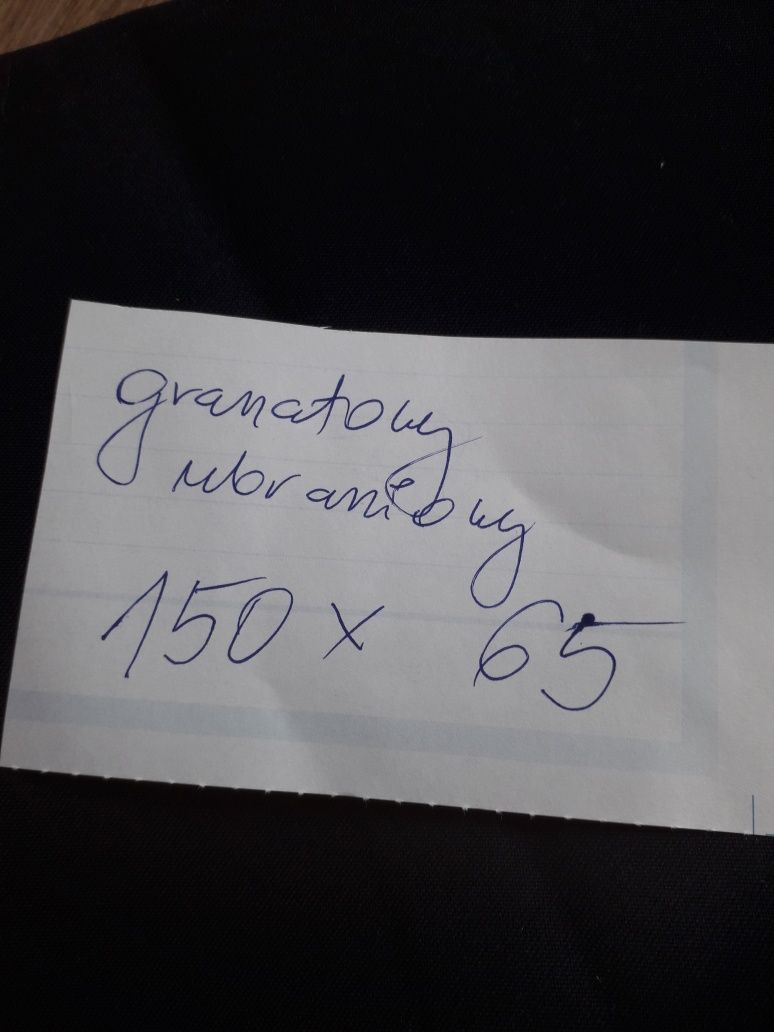 granatowy
ubraniowy
150 x 65